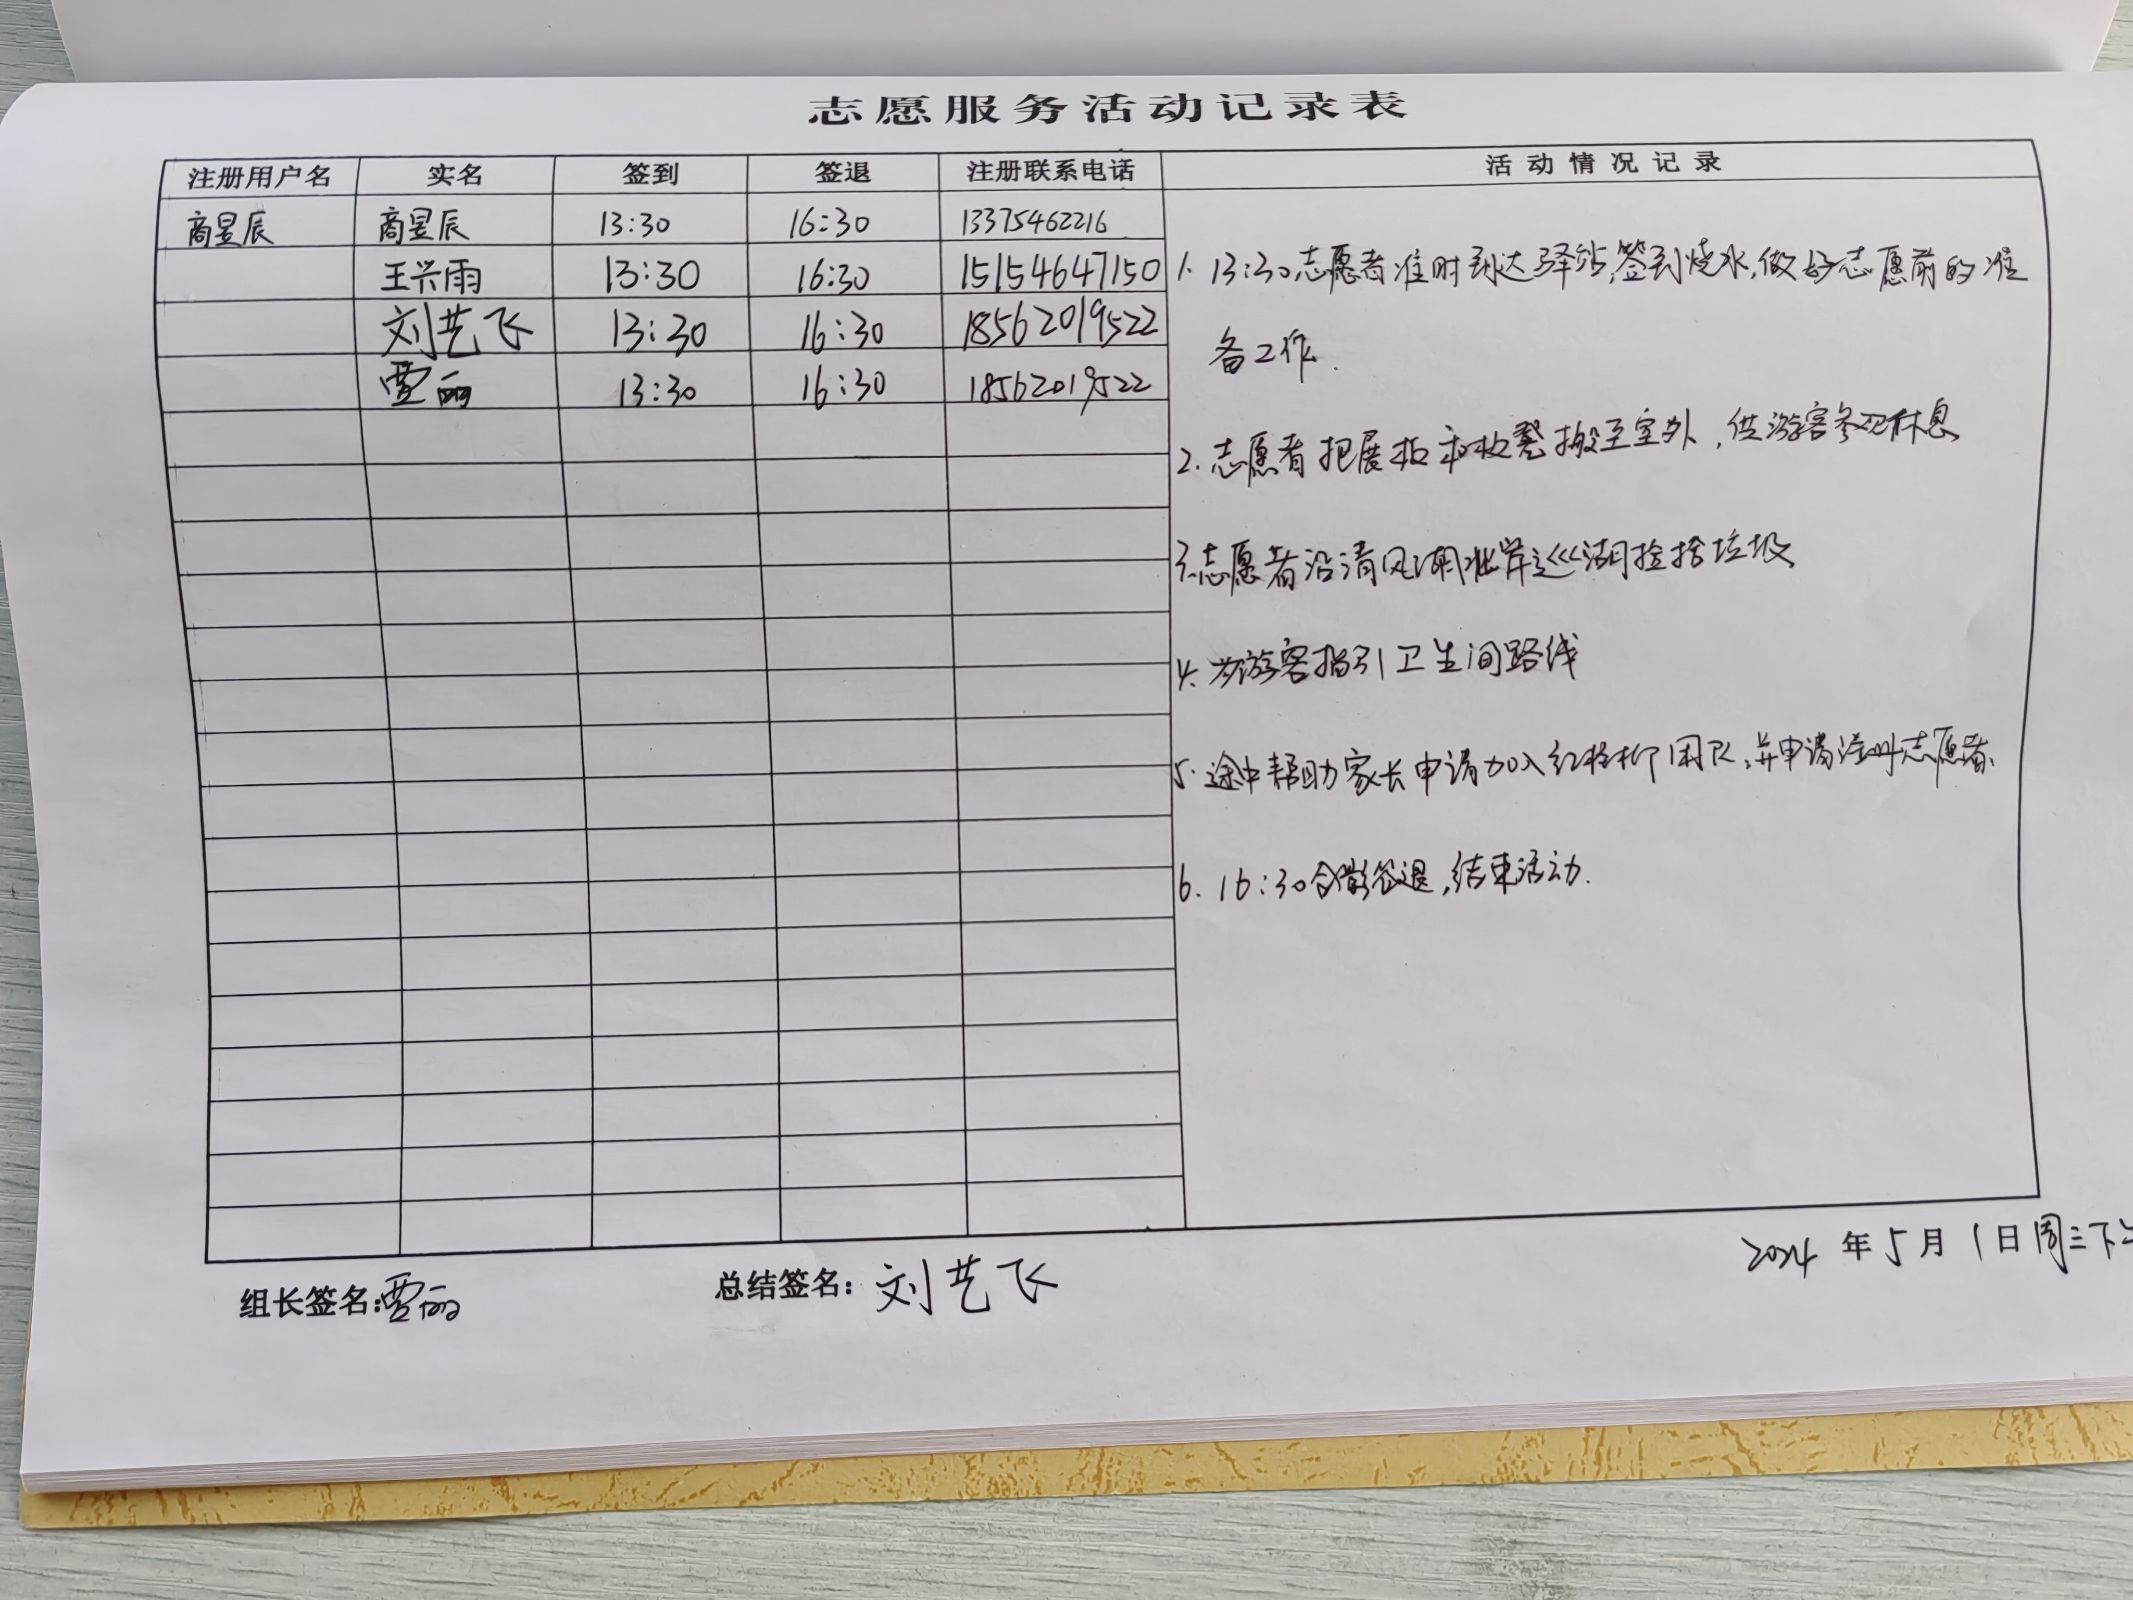 志愿服务活动记录表
注册用户名 实名 签到 签退 注册联系电话 活动情况记录
商昱辰 商昱辰 13:30 16:30 13375462216
王兴雨 13:30 16:30 15154647150
刘艺飞 13:30 16:30 18562019522
贾丽 13:30 16:30 18562019522
1. 13:30志愿者准时到达驿站,签到烧水,做好志愿前的准
备工作.
2. 志愿者把展板和板凳搬至室外,供游客参观休息
3.志愿者沿清风湖北岸巡湖捡拾垃圾
4. 为游客指引卫生间路线
5. 途中帮助家长申请加入红柽柳团队,并申请注册志愿者.
6. 16:30合影签退,结束活动.
组长签名:贾丽 总结签名: 刘艺飞 2024年5月1日周三下午